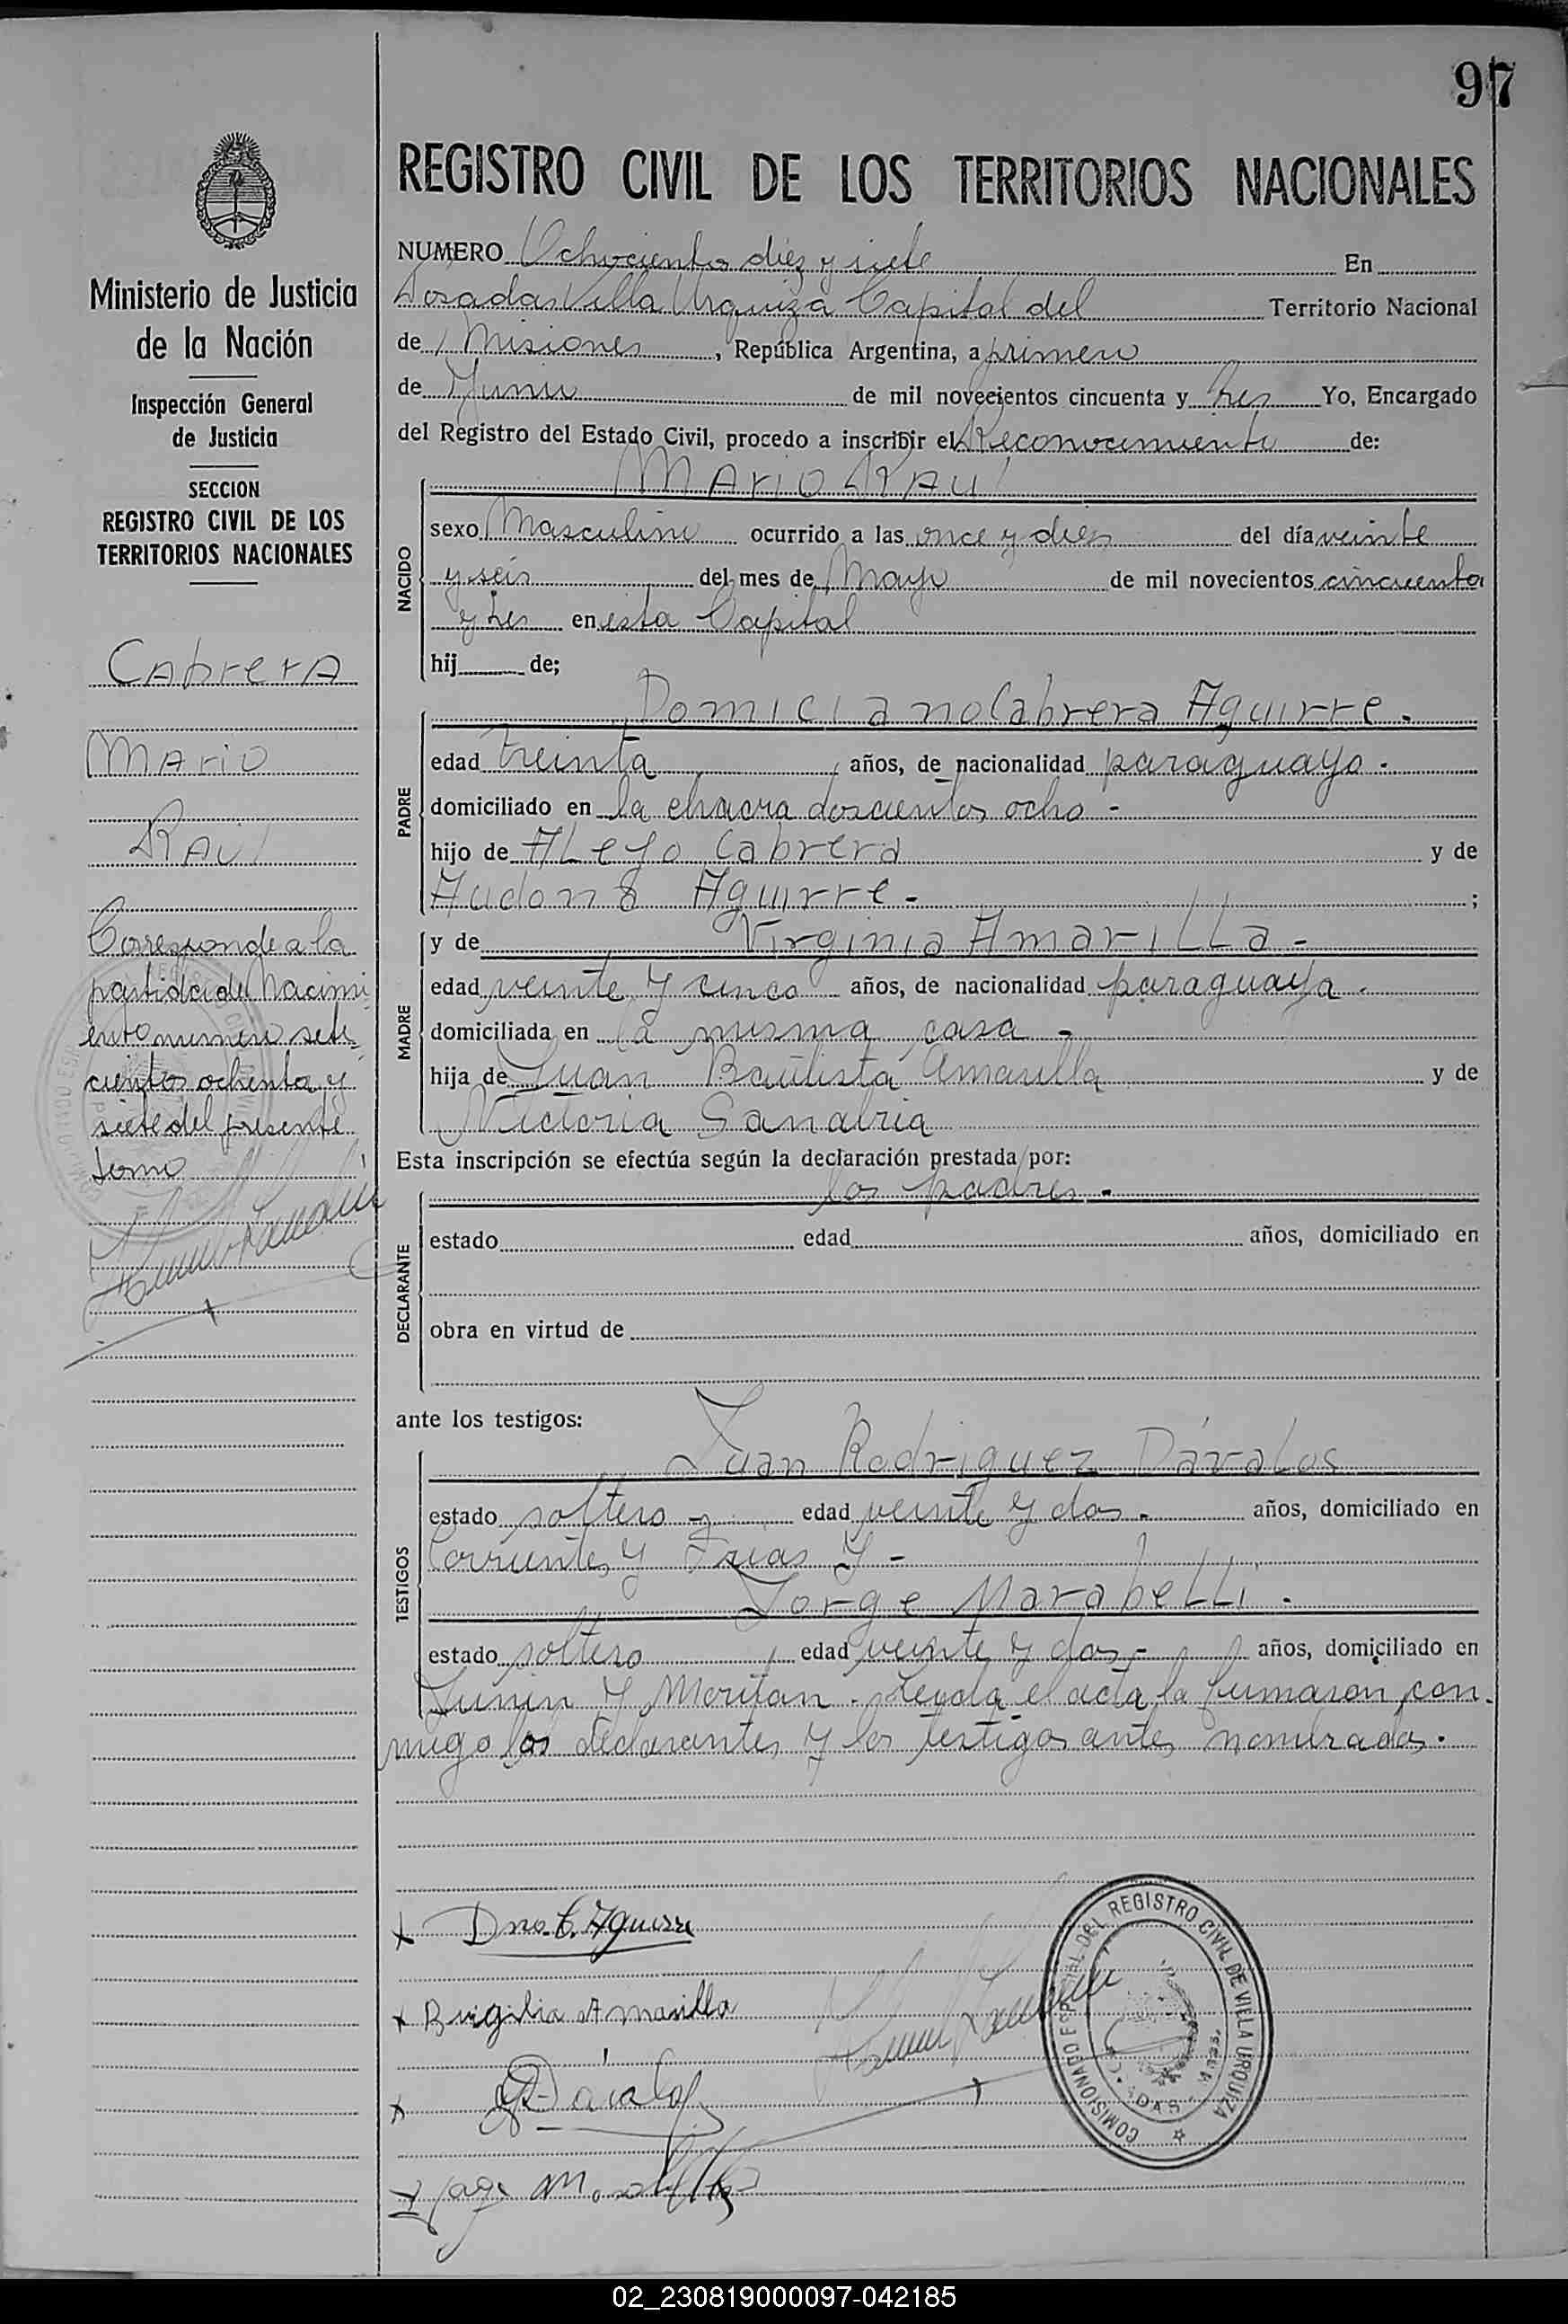 97
REGISTRO CIVIL DE LOS TERRITORIOS NACIONALES
Ministerio de Justicia
de la Nación
Inspección General
de Justicia
SECCION
REGISTRO CIVIL DE LOS
TERRITORIOS NACIONALES
CAbrerA
MAriO
RAUl
Corresponde a la
partida de Nacimi
ento numero sete
cientos ochenta y
siete del presente
tomo
NUMERO Ochocientos diez y siete En
Posadas Villa Urquiza Capital del Territorio Nacional
de Misiones, República Argentina, a primero
de Junio de mil novecientos cincuenta y tres Yo, Encargado
del Registro del Estado Civil, procedo a inscribir el Reconocimiento de:
NACIDO
MAriO RAUl
sexo Masculino ocurrido a las once y diez del día veinte
y seis del mes de Mayo de mil novecientos cincuenta
y tres en esta Capital
hij de;
PADRE
Domiciano Cabrera Aguirre.
edad treinta años, de nacionalidad paraguayo.
domiciliado en la chacra doscientos ocho -
hijo de ALeJo Cabrera y de
Aguirre - ;
MADRE
y de Virginia AmariLLa -
edad veinte y cinco años, de nacionalidad paraguaya.
domiciliada en la misma casa -
hija de Juan Bautista Amarilla y de
Victoria Sanabria
Esta inscripción se efectúa según la declaración prestada por:
DECLARANTE
los padres -
estado edad años, domiciliado en
obra en virtud de
ante los testigos:
TESTIGOS
Juan Rodriguez DávaLos
estado soltero - edad veinte y dos - años, domiciliado en
Corrientes y Frias y -
Jorge MarabeLLi.
estado soltero edad veinte y dos - años, domiciliado en
Junin y Moritan. Leyda el acta la firmaron con-
migo los declarantes y los testigos antes nombrados.
x Dno. C. Aguirre
x Birgilia Amarilla
x Dávalos
x Jorge
COMISIONADO ESPECIAL DEL REGISTRO CIVIL DE VILLA URQUIZA
02_230819000097-042185